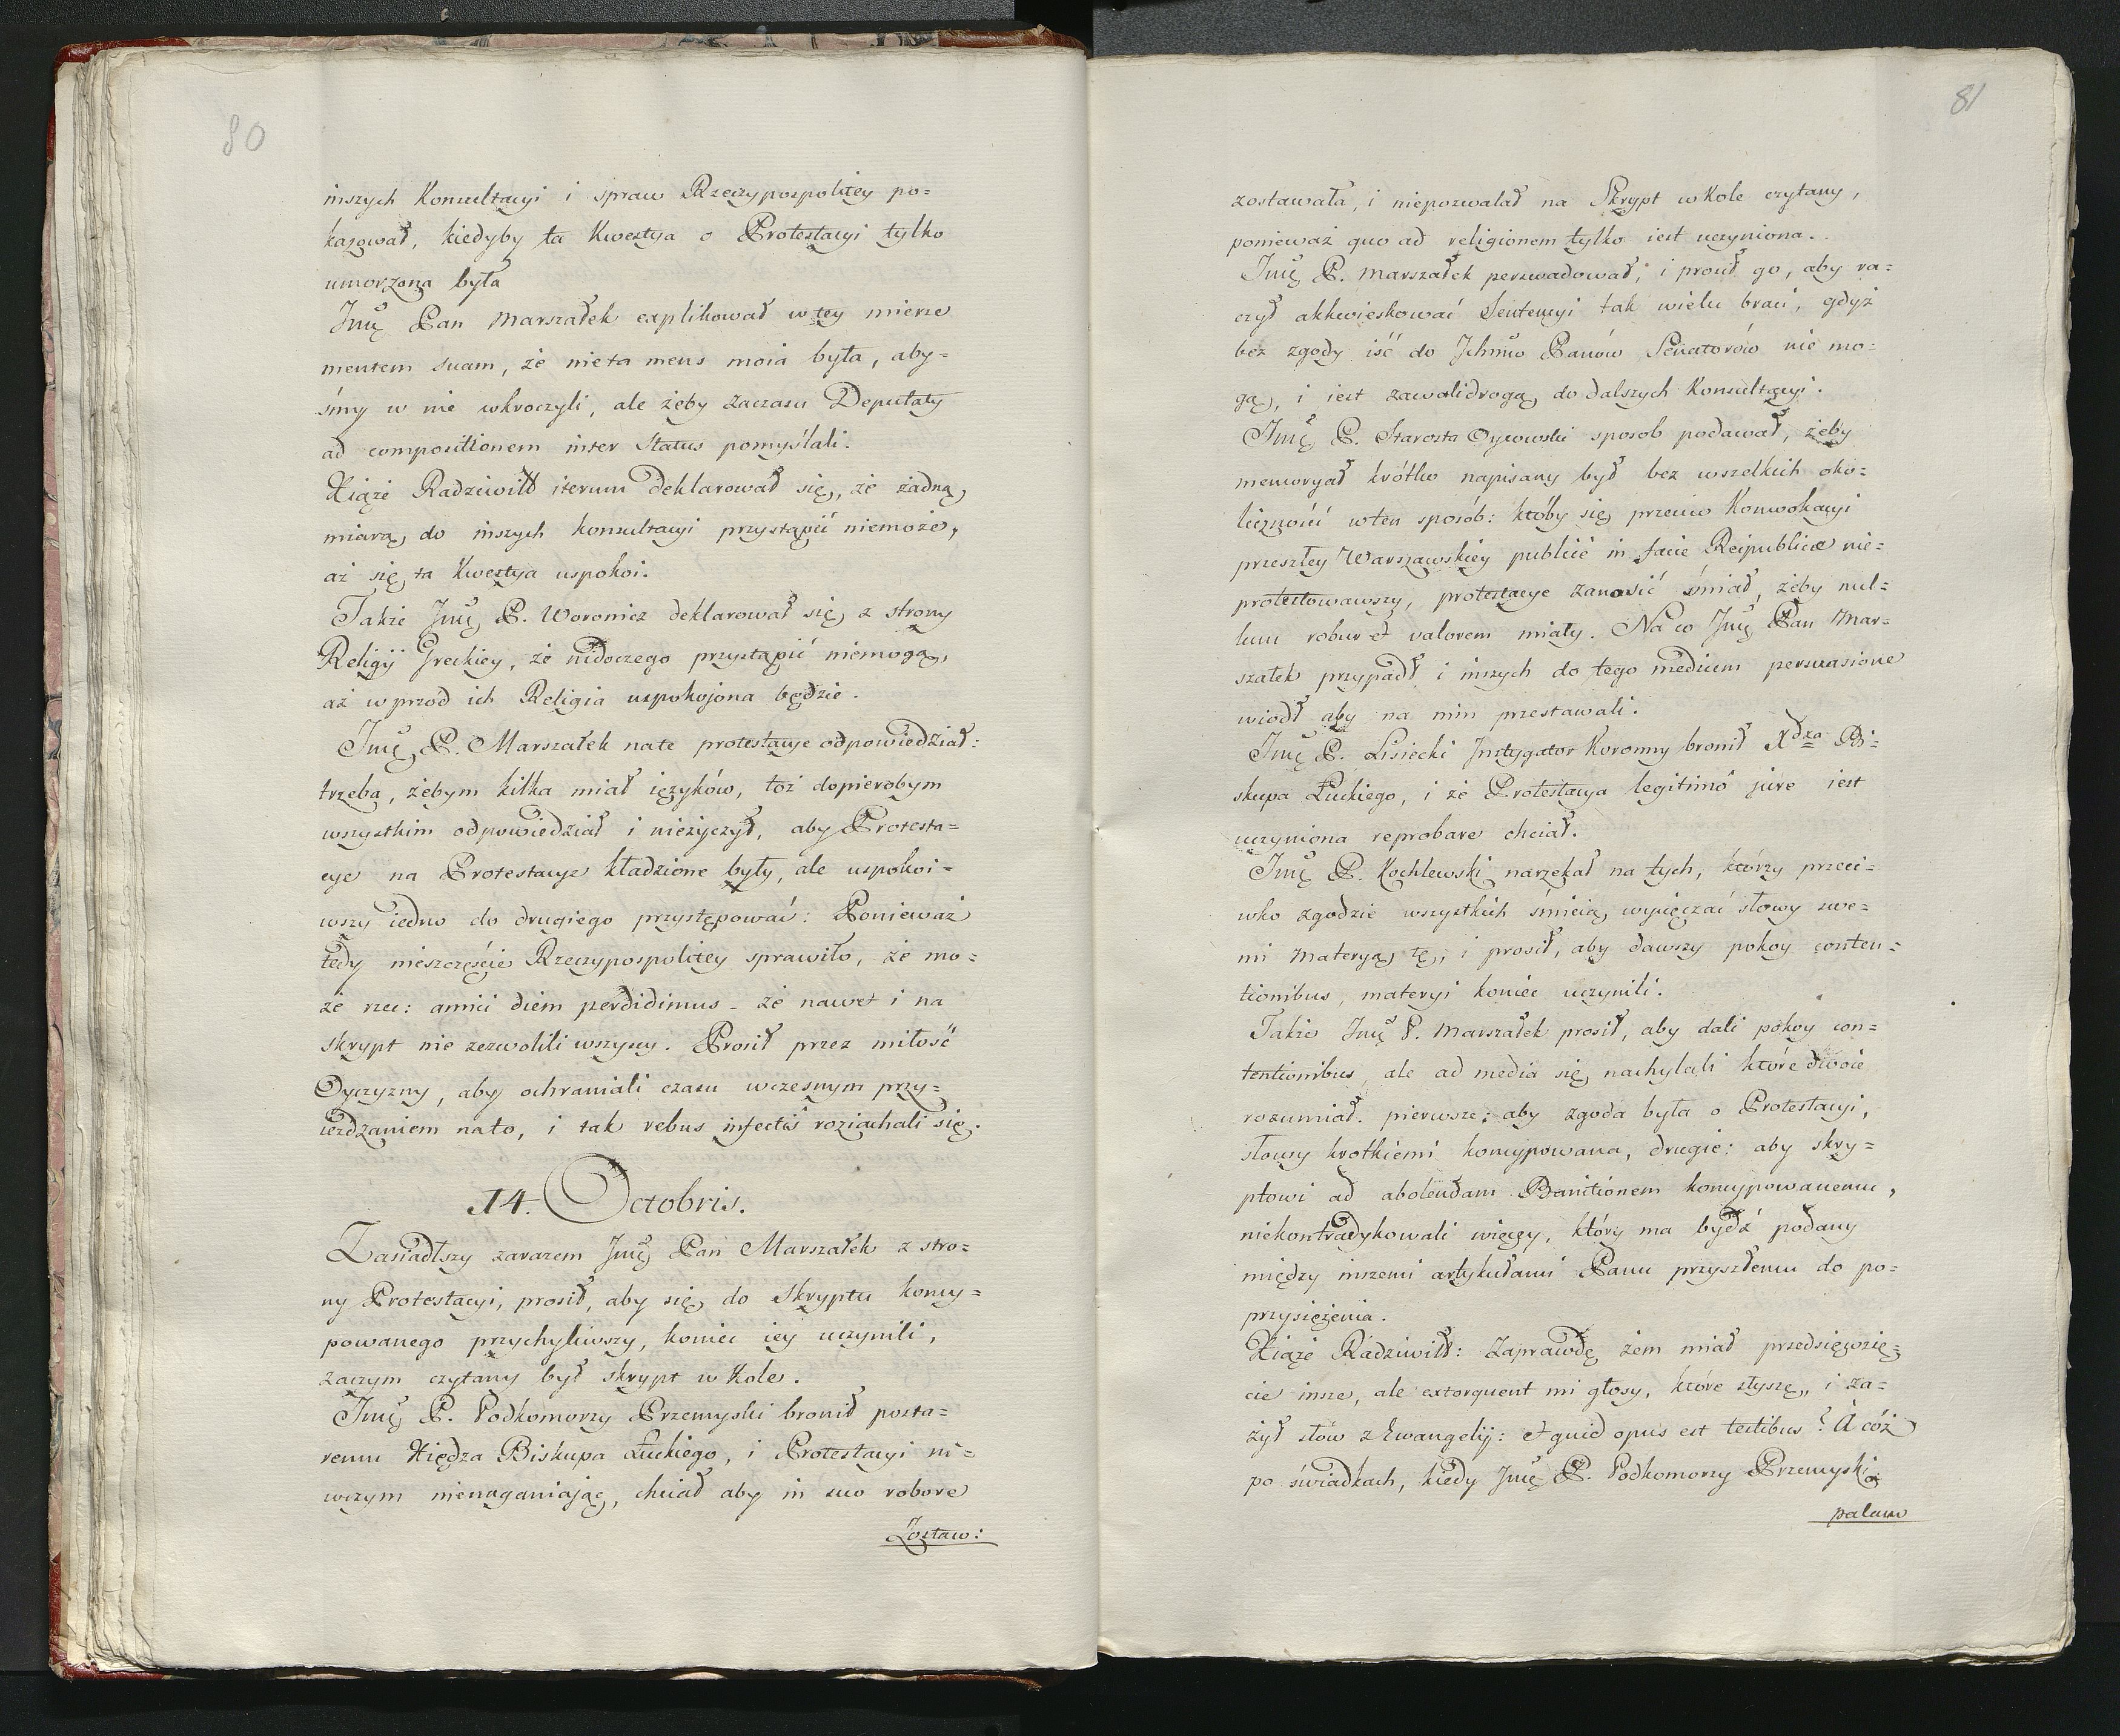 80
inszych Konsultacyi i spraw Rzeczypospolitey po=
kazował, kiedyby ta Kwestya o Protestacyi tylko
umorzona była
Jmę Pan Marszałek explikował w tey mierze
mentem suam, że nie ta mens moia była, aby=
śmy w nie wkroczyli, ale żeby zaczasu Deputaty
ad compositionem inter Status pomyślali.
Xiąże Radziwiłł iterum deklarował się, że żadną
miarą do inszych konsultacyi przystąpić niemoże,
aż się ta Kwestya uspokoi.
Także Jmę P. Woronicz deklarował się z strony
Religij Greckiey, że nidoczego przystąpić niemogą,
aż wprzod ich Religia uspokojona będzie.
Jmę P. Marszałek nate protestacye odpowiedział:
trzeba, żebym kilka miał ięzyków, toż dopierobym
wszystkim odpowiedział i nieżyczył, aby Protesta=
cye na Protestacye kładzione były, ale uspokoi=
wszy iedno do drugiego przystępować: Ponieważ
tedy nieszczęście Rzeczypospolitey sprawiło, że mo=
że rzec: amici diem perdidimus - że nawet i na
skrypt nie zezwolili wszyscy. Prosił przez miłość
Oyczyzny, aby ochraniali czasu wczesnym przy=
ieżdzaniem nato, i tak rebus infectis roziachali się.
14. Octobris.
Zasiadłszy zarazem Jmę Pan Marszałek z stro=
ny Protestacyi, prosił, aby się do Skryptu koncy=
powanego przychyliwszy, koniec iey uczynili,
zaczym czytany był skrypt w Kole.
Jmę P. Podkomorzy Przemyski bronił posta=
remu Xiędza Biskupa Łuckiego, i Protestacyi ni=
wczym nienaganiając, chciał aby in suo robore
Zostaw:
81
zostawała, i niepozwalał na Skrypt w Kole czytany,
ponieważ quo ad religionem tylko iest uczyniona.
Jmę P. Marszałek perswadował, i prosił go, aby ra=
czył akkwieskować Sentencyi tak wielu braci, gdyż
bez zgody iść do Jchmw Panów Senatorów nie mo=
gą, i iest zawalidrogą do dalszych Konsultacyi.
Jmę P. Starosta Oycowski sposob podawał, żeby
memoryał krótko napisany był bez wszelkich oko=
liczności w ten sposób: ktoby się przeciw Konwokacyi
przeszłey Warszawskiey publicè in facie Reipublicæ nie=
protestowawszy, protestacye zanosić śmiał, żeby nul=
lum robur et valorem miały. Na co Jmę Pan Mar=
szałek przypadł i inszych do tego medium persuasione
wiodł aby na nim przestawali.
Jmę P. Lisiecki Jnstygator Koronny bronił Xdza Bi=
skupa Łuckiego, i że Protestacya legitimô jure iest
uczyniona reprobare chciał.
Jmę P. Kochlewski narzekał na tych, którzy przeci=
wko zgodzie wszystkich śmieią wycięczać słowy swe=
mi materyą tę, i prosił, aby dawszy pokoy conten=
tionibus, materyi koniec uczynili.
Także Jmę P. Marszałek prosił, aby dali pokoy con=
tentionibus, ale ad media się nachylali które dwoie
rozumiał. pierwsze: aby zgoda była o Protestacyi,
słowy krotkiemi koncypowana, drugie: aby skry=
ptowi ad abolendam Banitionem koncypowanemu,
niekontradykowali więcey, który ma bydź podany
między inszemi artykułami Panu przyszłemu do po=
przysiężenia.
Xiąże Radziwiłł: Zaprawdę żem miał przedsięwzię=
cie insze, ale extorquent mi głosy, które słyszę, i za=
żył słów z Ewangelij: et quid opus est testibus? A cóż
po świadkach, kiedy Jmę P. Podkomorzy Przemyski
palam